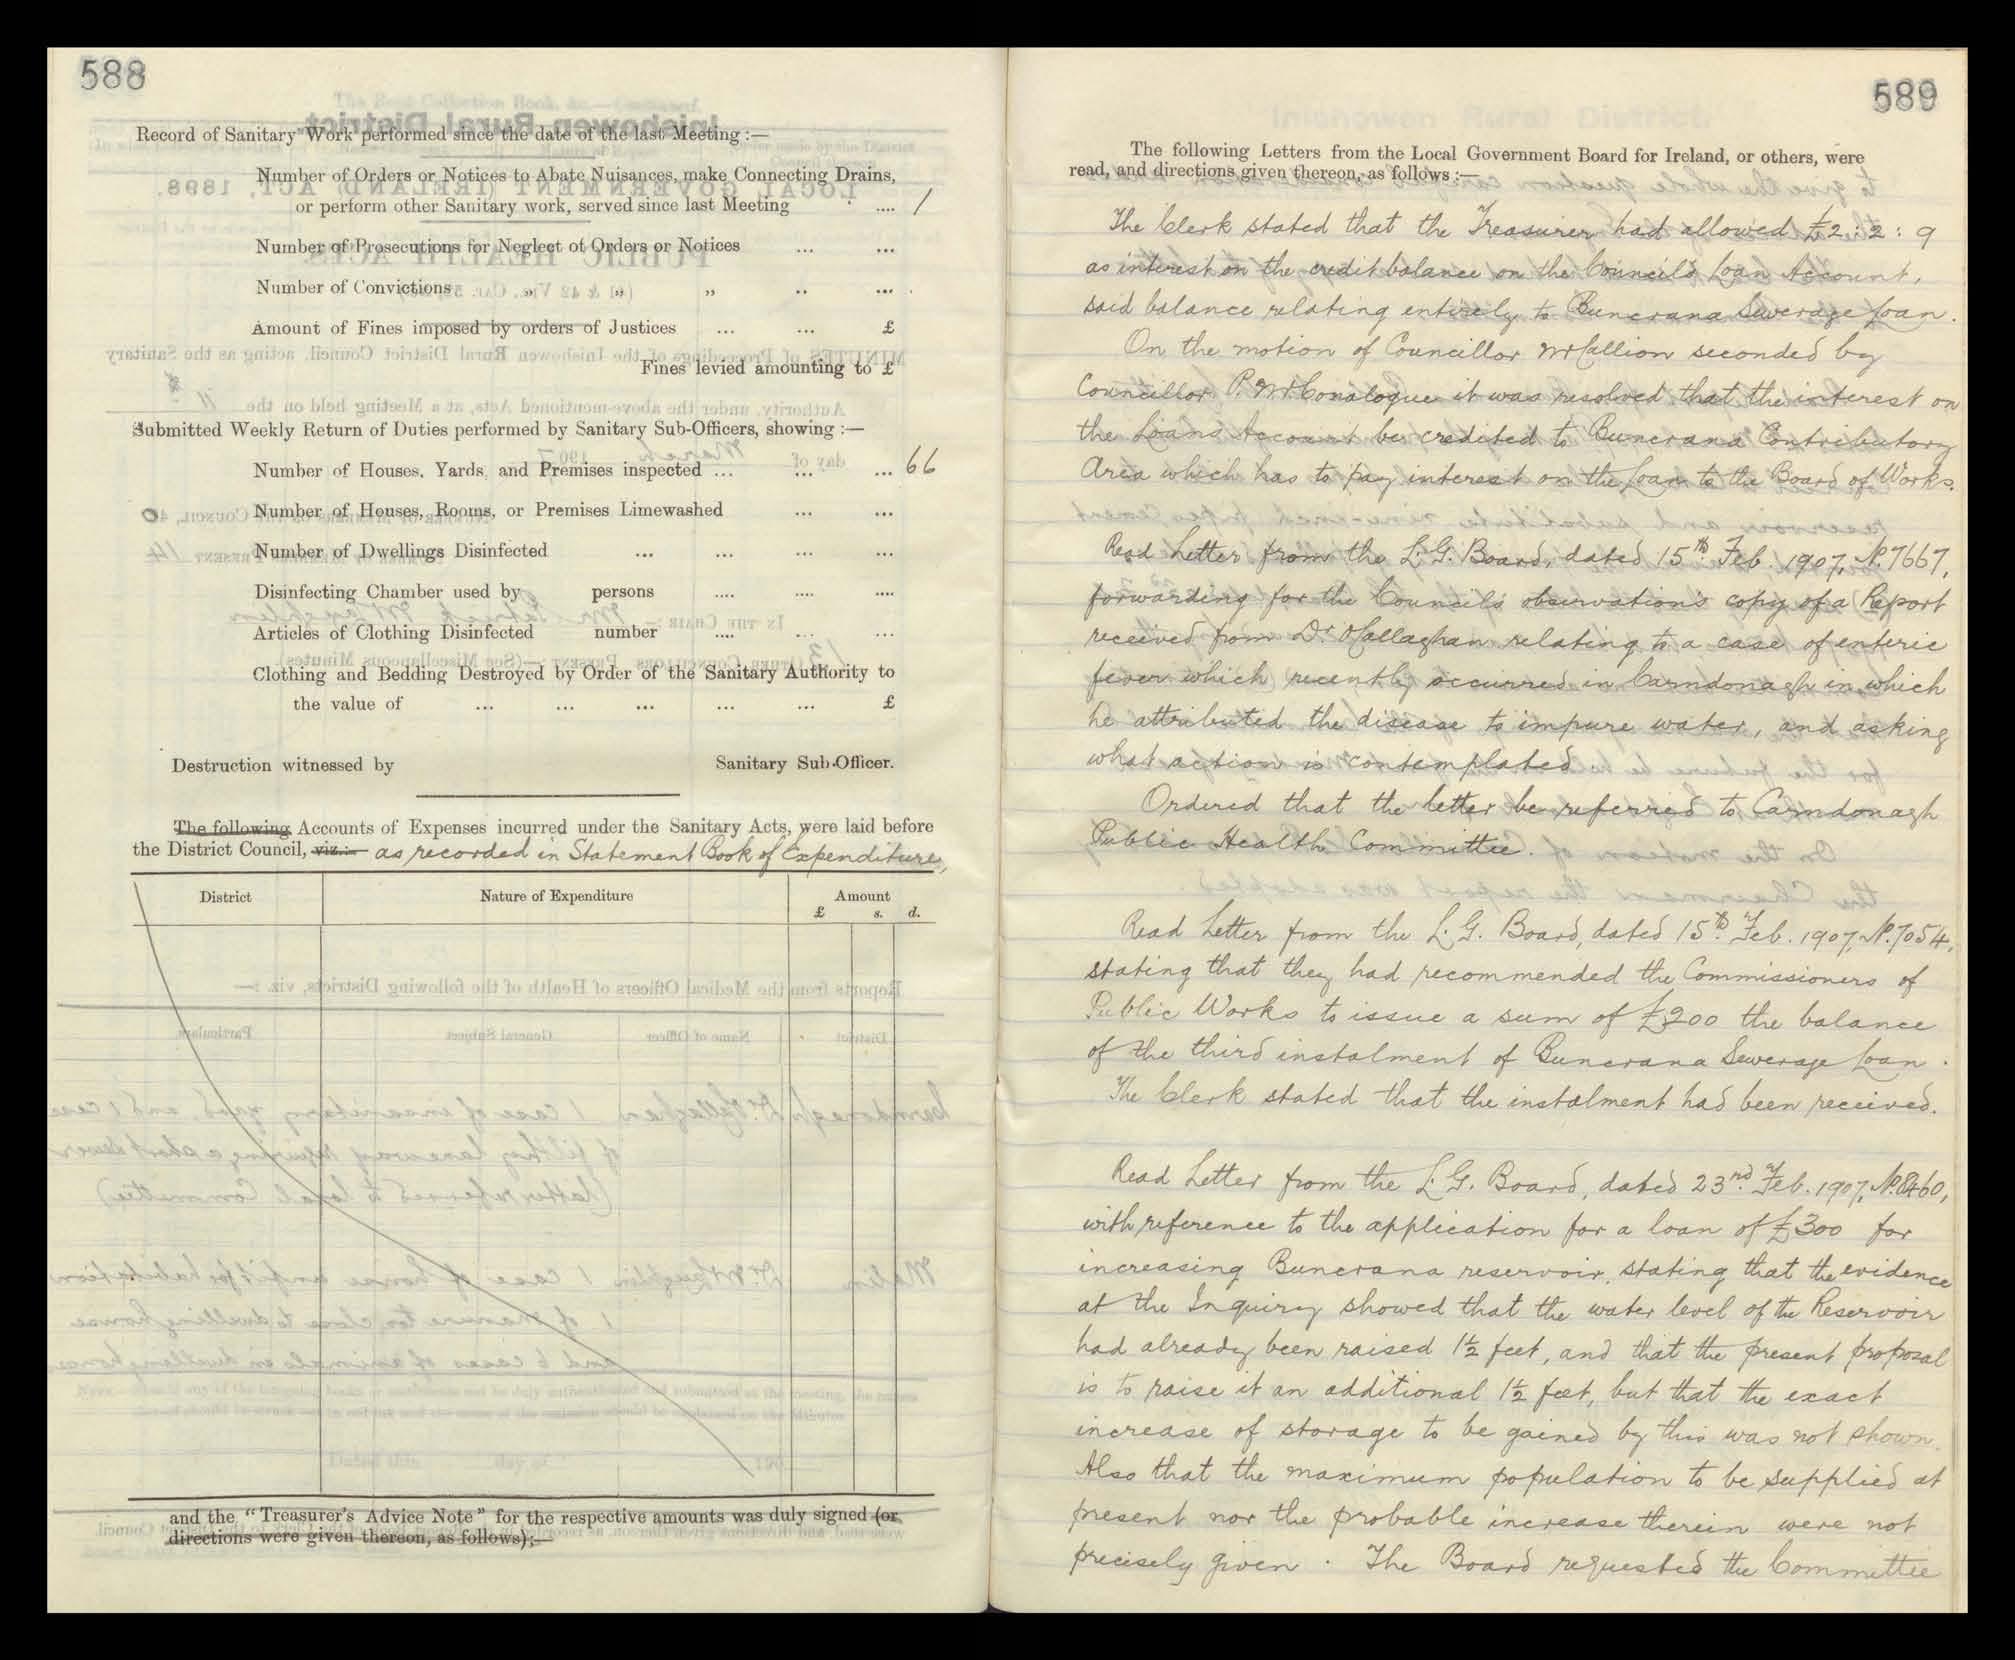 588
Record of Sanitary Work performed since the date of the last Meeting :—
Number of Orders or Notices to Abate Nuisances, make Connecting Drains,
or perform other Sanitary work, served since last Meeting .... 1
Number of Prosecutions for Neglect of Orders or Notices ... ...
Number of Convictions „ „ „ .. ...
Amount of Fines imposed by orders of Justices ... ... £
Fines levied amounting to £
Submitted Weekly Return of Duties performed by Sanitary Sub-Officers, showing :—
Number of Houses, Yards, and Premises inspected ... ... ... 66
Number of Houses, Rooms, or Premises Limewashed ... ...
Number of Dwellings Disinfected ... ... ... ...
Disinfecting Chamber used by persons .... .... ....
Articles of Clothing Disinfected number .... ... ...
Clothing and Bedding Destroyed by Order of the Sanitary Authority to
the value of ... ... ... ... ... £
Destruction witnessed by Sanitary Sub-Officer.
The following Accounts of Expenses incurred under the Sanitary Acts, were laid before
the District Council, viz.:— as recorded in Statement Book of Expenditure,
District Nature of Expenditure Amount
£ s. d.
and the "Treasurer's Advice Note" for the respective amounts was duly signed (or
directions were given thereon, as follows):—
589
The following Letters from the Local Government Board for Ireland, or others, were
read, and directions given thereon, as follows :—
The Clerk stated that the Treasurer had allowed £2 : 2 : 9
as interest on the credit balance on the Council's Loan Account,
said balance relating entirely to Buncrana Sewerage Loan.
On the motion of Councillor McCallion seconded by
Councillor P. McConalogue it was resolved that the interest on
the Loans Account be credited to Buncrana Contributory
Area which has to pay interest on the Loan to the Board of Works.
Read Letter from the L. G. Board, dated 15th Feb. 1907, No. 7667,
forwarding for the Council's observations copy of a Report
received from Dr. O'Callaghan relating to a case of enteric
fever which recently occurred in Carndonagh in which
he attributed the disease to impure water, and asking
what action is contemplated.
Ordered that the letter be referred to Carndonagh
Public Health Committee.
Read Letter from the L. G. Board, dated 15th Feb. 1907, No. 7054,
stating that they had recommended the Commissioners of
Public Works to issue a sum of £200 the balance
of the third instalment of Buncrana Sewerage Loan.
The Clerk stated that the instalment had been received.
Read Letter from the L. G. Board, dated 23rd Feb. 1907, No. 8460,
with reference to the application for a loan of £300 for
increasing Buncrana reservoir, stating that the evidence
at the Inquiry showed that the water level of the Reservoir
had already been raised 1½ feet, and that the present proposal
is to raise it an additional 1½ feet, but that the exact
increase of storage to be gained by this was not shown.
Also that the maximum population to be supplied at
present nor the probable increase therein were not
precisely given. The Board requested the Committee